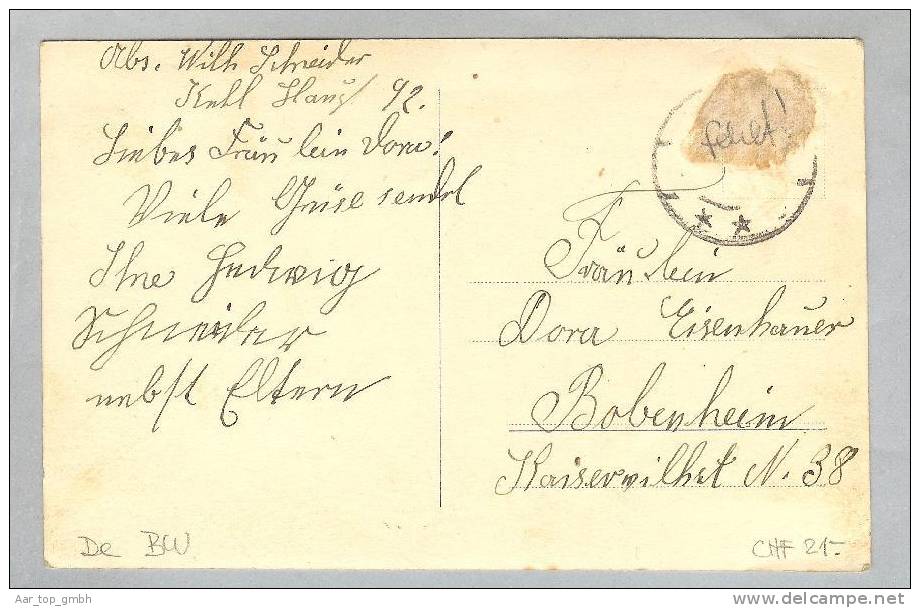 Abs. Wilh Schneider
Kehl Haup 92.
Liebes Fräulein Dora!
Viele Grüse sendet
Ihne Hedwig
Schneider
nebst Eltern
fehlt!
Fräulein
Dora Eisenhauer
Bobenheim
Kaiserwilhst N. 38
De BW
CHF 21-
Aar_top_gmbh
www.delcampe.net